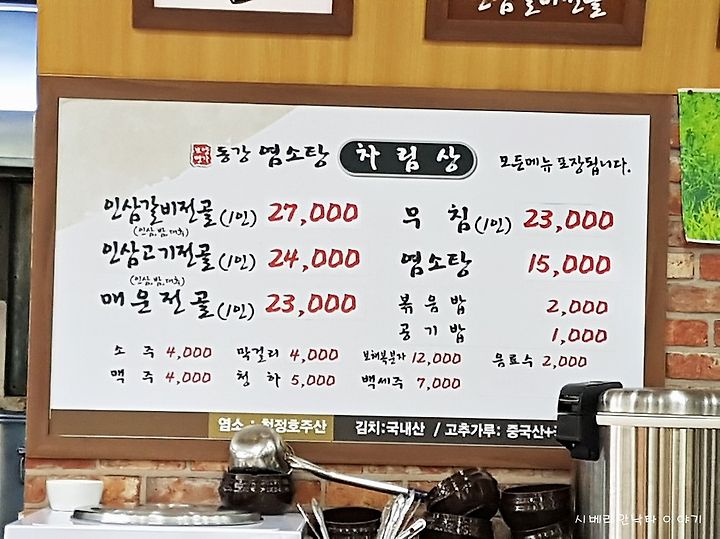 동강 염소탕 차림상 모든메뉴 포장됩니다.
인삼갈비전골(1인) 27,000 무 침(1인) 23,000
(인삼, 밤, 대추)
인삼고기전골(1인) 24,000 염소탕 15,000
(인삼, 밤, 대추)
매운전골(1인) 23,000 볶음밥 2,000
공기밥 1,000
소 주 4,000 막걸리 4,000 보해복분자 12,000 음료수 2,000
맥 주 4,000 청 하 5,000 백세주 7,000
염소 : 청정호주산 김치:국내산 / 고추가루: 중국산+
시베리안낙타 이야기